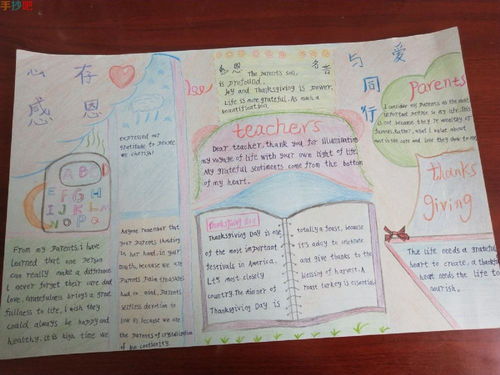 手抄吧
心存
感恩
A B
E F G H
I J K L
N O P Q
From my Parents, I have
learned that one person
can really make a difference
I never forget their care and
love. Gratefulness brings a great
fullness to life, I wish they
could always be happy and
healthy. It is high time we
expressed our
gratitude to
Anyone remember that
your Parents
in her hand, in your
mouth, because we are
Parents Palm treasures
had in mind, Parents
selfless devotion to
love us because we are
the Parents of crystallization
of the continuity
love
感恩 名言
The Parents son,
is profound.
Joy and Thanksgiving is power.
Life is more grateful. As such a
beautification soul
teachers
Dear teacher, thank you for illuminating
my voyage of life with your own light of life.
My grateful sentiments come from the bottom
of my heart.
Thanksgiving Day
Thanksgiving Day is one
of the most important
festivals in America.
It's most closely
country. The dinner of
Thanksgiving Day is
totally a feast, because
it's a day to celebrate
and give thanks to the
blessing of harvest. A
roast turkey is essential
与爱
同
行
Parents
I consider my parents as the most
important people in my life. This is
not because they're wealthy or
famous. Rather, what I value about
most is the care and love they show to me
thanks
giving
The life needs a grateful
heart to create, a thankful
heart needs the life to
nourish.